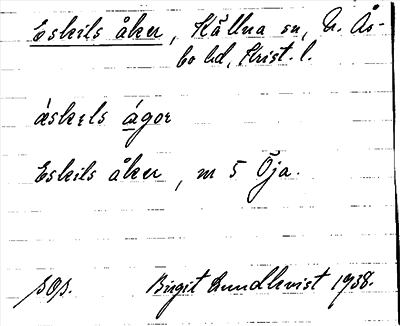 Eskils åker, Källna sn, N. Ås-
bo hd, Krist. l.
áskɛls ágor
Eskils åker, m 5 Öja.
sOp. Birgit Lundkvist 1938.